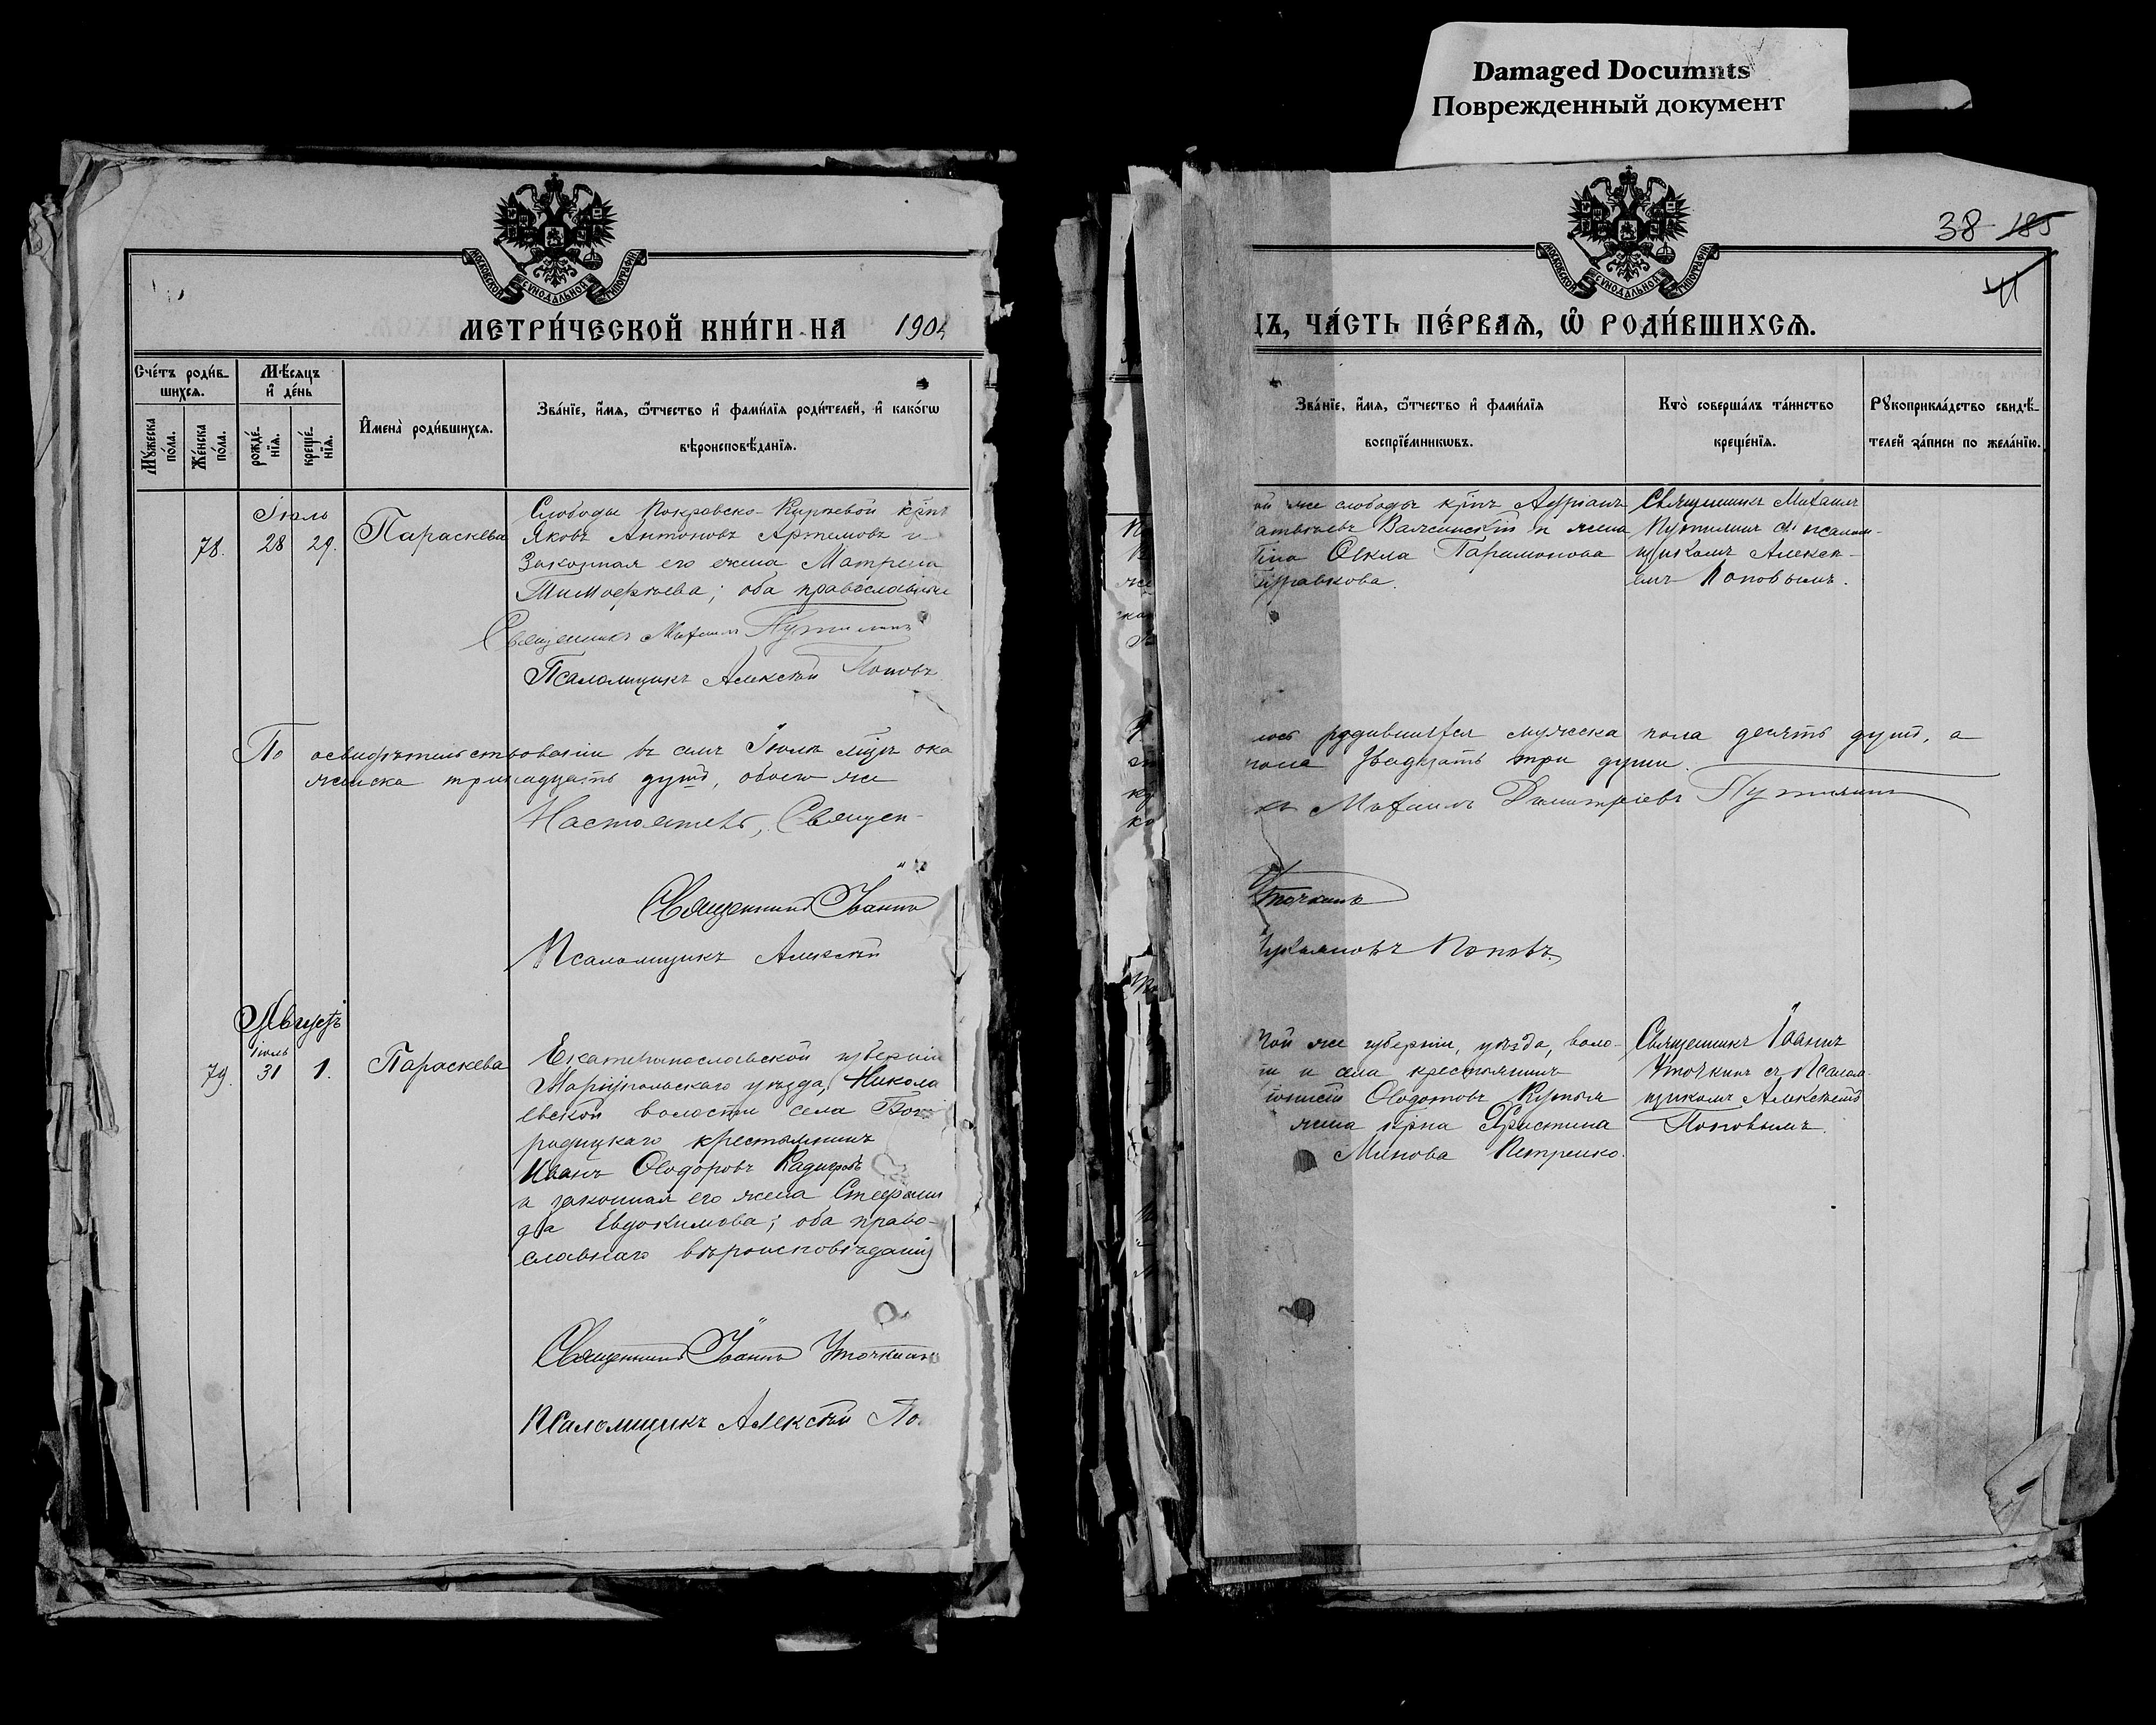 Damaged Documnts
Поврежденный документ
МОСКОВСКОЙ СѴНОДАЛЬНОЙ ТИПОГРАФІИ
МЕТРИ́ЧЕСКОЙ КНИ́ГИ НА 190
Сче́тъ роди́в-
шихсѧ.
Мѣ́сѧцъ
и҆ де́нь
Мꙋ́жеска по́ла.
Же́нска по́ла.
рожде́-
нїѧ.
креще́-
нїѧ.
И҆мена̀ роди́вшихсѧ.
Зва́нїе, и҆́мѧ, ѻ҆́тчество и҆ фами́лїѧ роди́телей, и҆ како́гѡ
вѣроисповѣ́данїѧ.
Іюль
78. 28 29. Параскева
Слободы Покровско-Киреевой крнъ
Яковъ Антоновъ Артемовъ и
законная его жена Матрена
Тимофѣева; оба православные
Священникъ Михаилъ Путилинъ
Псаломщикъ Алексѣй Поповъ
По освидѣтельствованіи въ семъ Іюлѣ мцѣ ока
женска тринадцать душъ, обоего же
Настоятель, Священ-
Священникъ Іоаннъ
Псаломщикъ Алексѣй
Августъ
іюль
79. 31 1. Параскева
Екатеринославской губерніи
Маріупольскаго уѣзда, Никола
евской волости села Бого
родицкаго крестьянинъ
Иванъ Ѳеодоровъ
и законная его жена Стефани
да Евдокимова; оба право-
славнаго вѣроисповѣданія
Священникъ Іоаннъ Уточкинъ
Псаломщикъ Алексѣй По
38 185
41
МОСКОВСКОЙ СѴНОДАЛЬНОЙ ТИПОГРАФІИ
ДЪ, ЧА́СТЬ ПЕ́РВАѦ, Ѡ҆ РОДИ́ВШИХСѦ.
Зва́нїе, и҆́мѧ, ѻ҆́тчество и҆ фами́лїѧ
воспрїе́мникѡвъ.
Кто̀ соверша́лъ та́инство
креще́нїѧ.
Рꙋкоприкла́дство свидѣ́-
телей за́писи по жела́нїю.
ой же слободы крнъ Адріанъ
и жена
Ѳекла Парамонова
Священникъ Михаилъ
Путилинъ съ псалом-
щикомъ Алексѣ-
емъ Поповымъ.
лось родившихся мужеска пола десять душъ, а
пола двадцать три души.
къ Михаилъ Димитріевъ Путилинъ
Уточкинъ
Поповъ.
той же губерніи, уѣзда, воло-
ти и села крестьянинъ
Ѳеодотовъ
жена Христина
Минова Петренко.
Священникъ Іоаннъ
Уточкинъ съ Псалом-
щикомъ Алексѣемъ
Поповымъ.